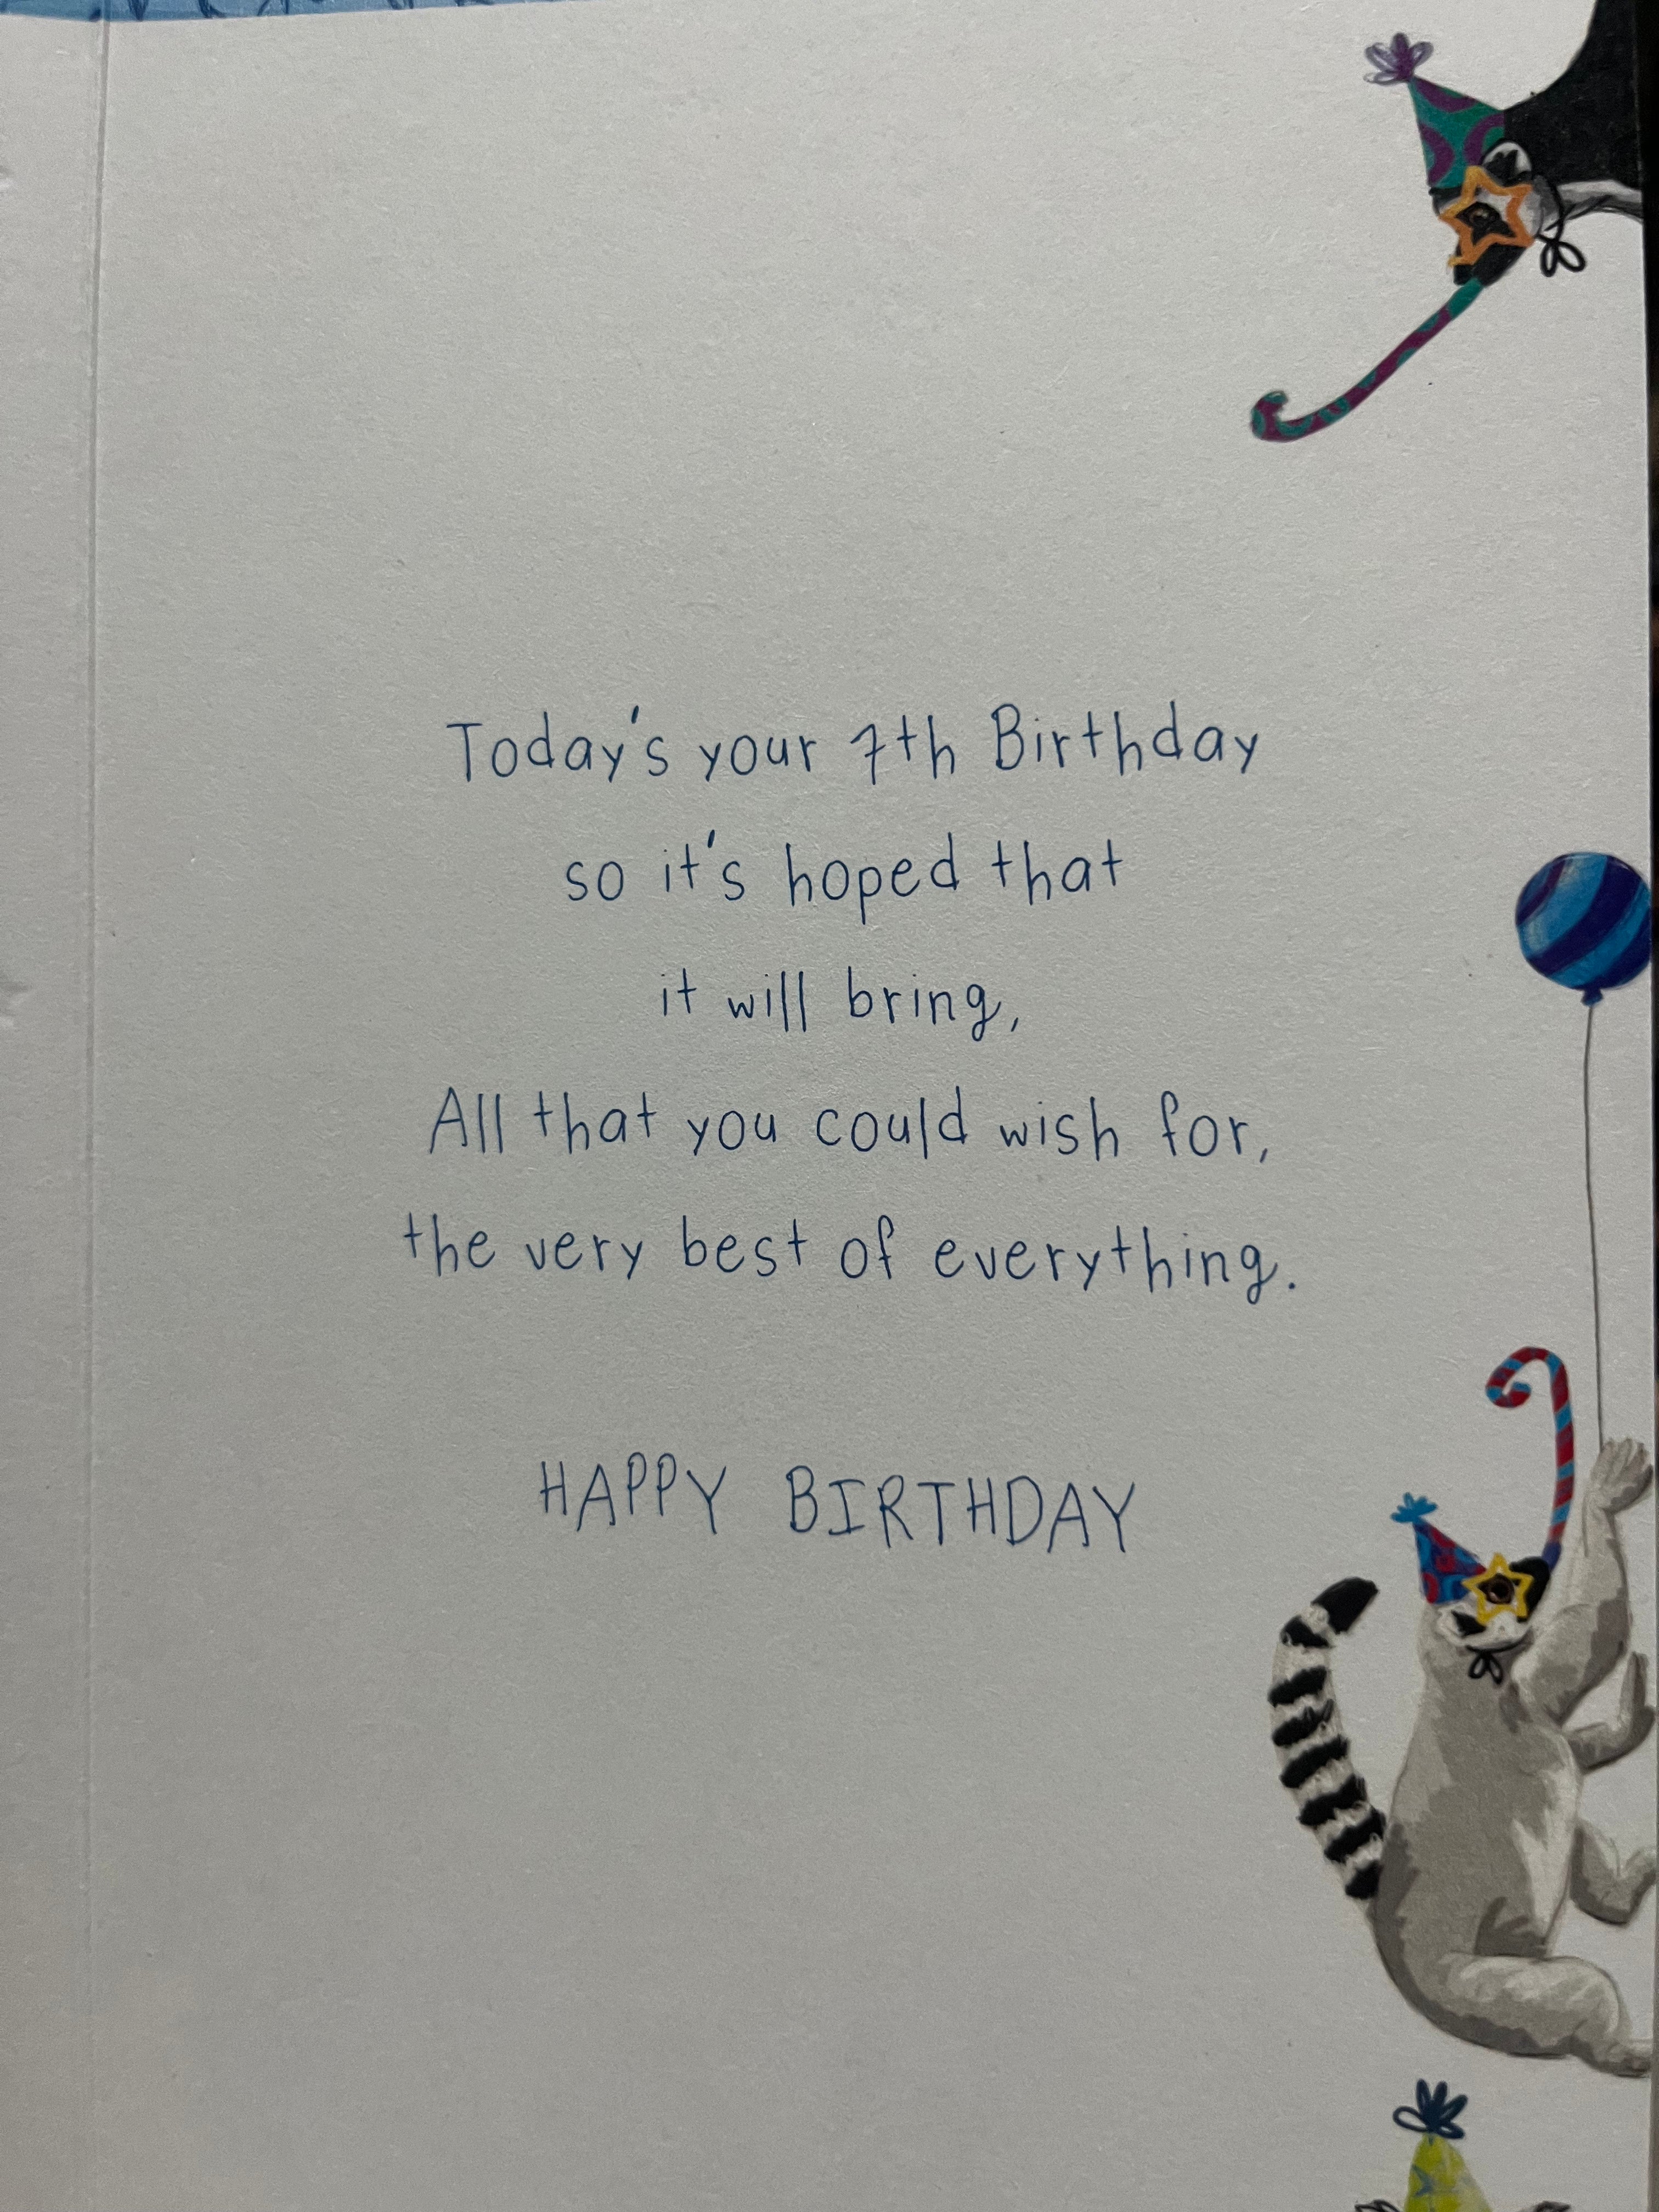 Today's your 7th Birthday
so it's hoped that
it will bring,
All that you could wish for,
the very best of everything.
HAPPY BIRTHDAY